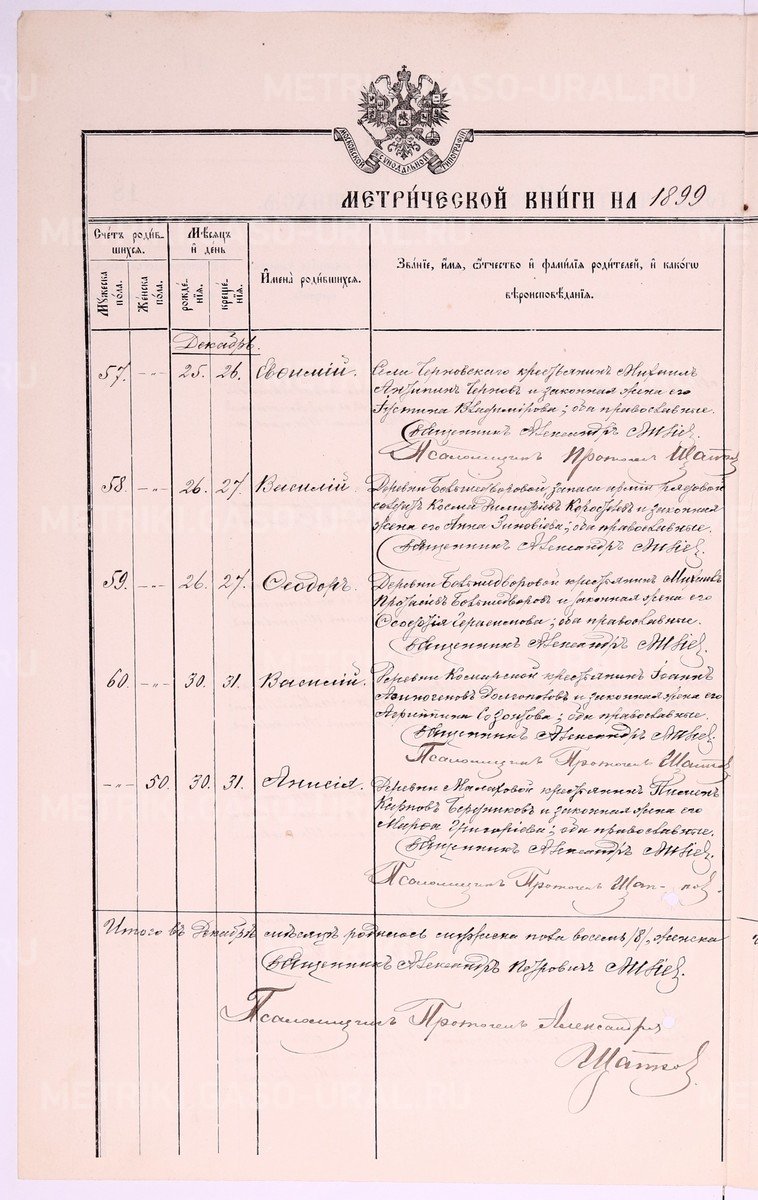 METRIK.GASO-URAL.RU
МОСКОВСКОЙ СѴНОДАЛЬНОЙ ТИПОГРАФІИ
МЕТРИЧЕСКОЙ КНИГИ НА 1899
Счетъ родившихся.
Мужеска пола.
Женска пола.
Мѣсяцъ и день
рожденія.
крещенія.
Имена родившихся.
Званіе, имя, отчество и фамилія родителей, и какого вѣроисповѣданія.
Декабрь.
57. -"- 25. 26. Евѳимій. Села Черновскаго крестьянинъ Михаилъ
Антипинъ Черновъ и законная жена его
Іустина Владимірова; оба православные.
Священникъ Александръ
Псаломщикъ Протогенъ Шатковъ
58. -"- 26. 27. Василій. Деревни запаса арміи рядовой
солдатъ Косма Димитріевъ и законная
жена его Анна Зиновіева; оба православные.
Священникъ Александръ
59. -"- 26. 27. Ѳеодоръ. Деревни крестьянинъ
и законная жена его
Ѳеодосія Герасимова; оба православные.
Священникъ Александръ
60. -"- 30. 31. Василій. Деревни Комарской крестьянинъ Іоаннъ
Аѳиногеновъ Долгополовъ и законная жена его
Агриппина Созонтова; оба православные.
Священникъ Александръ
Псаломщикъ Протогенъ Шатковъ
-"- 50. 30. 31. Анисія. Деревни Малаховой крестьянинъ Пименъ
Карповъ Бердниковъ и законная жена его
Марѳа Григоріева; оба православные.
Священникъ Александръ
Псаломщикъ Протогенъ Шатковъ.
Итого въ Декабрѣ мѣсяцѣ родилось мужеска пола восемь /8/, женска
Священникъ Александръ Петровичъ
Псаломщикъ Протогенъ Александровъ
Шатковъ